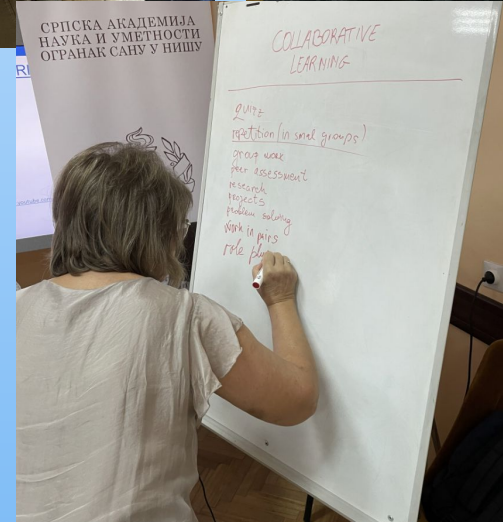 СРПСКА АКАДЕМИЈА
НАУКА И УМЕТНОСТИ
ОГРАНАК САНУ У НИШУ
COLLABORATIVE
LEARNING
repetition (in small groups)
group work
peer assessment
research
projects
problem solving
work in pairs
role